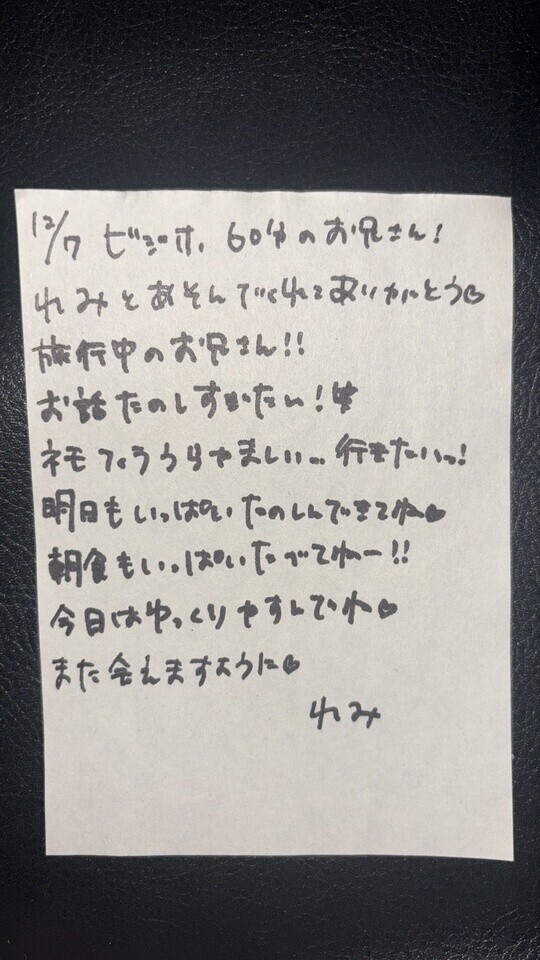 12/7 ビジオ、60分のお兄さん!
れみとあそんでくれてありがとう♡
旅行中のお兄さん!!
お話たのしすぎたい!
ネモフィラうらやましい... 行きたいっ!
明日もいっぱいたのしんできてね♥
朝食もいっぱいたべてねー!!
今日はゆっくりやすんでね♥
また会えますように♥
れみ